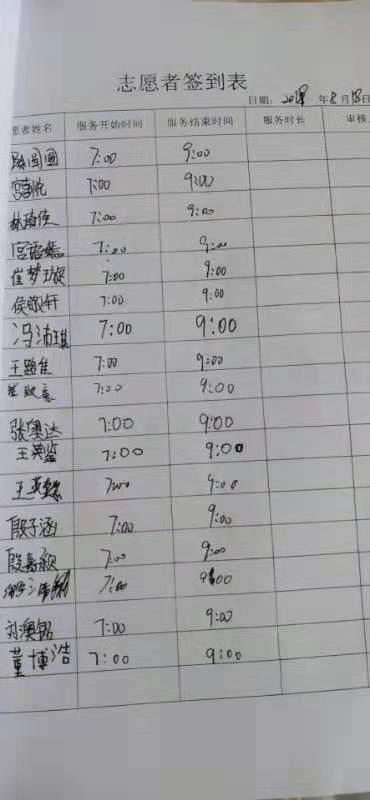 志愿者签到表
日期: 2018 年 8 月 18 日
愿者姓名 服务开始时间 服务结束时间 服务时长 审核
7:00 9:00
7:00 9:00
7:00 9:00
7:00 9:00
崔梦璇 7:00 9:00
侯敬轩 7:00 9:00
冯沛琪 7:00 9:00
王路佳 7:00 9:00
7:00 9:00
张奥达 7:00 9:00
王英鉴 7:00 9:00
7:00 9:00
殷子涵 7:00 9:00
殷嘉颖 7:00 9:00
7:00 9:00
刘澳铭 7:00 9:00
董博浩 7:00 9:00